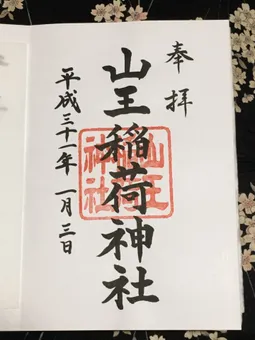 奉拝
山王稲荷神社
平成三十一年一月三日
山王
稲荷
神社